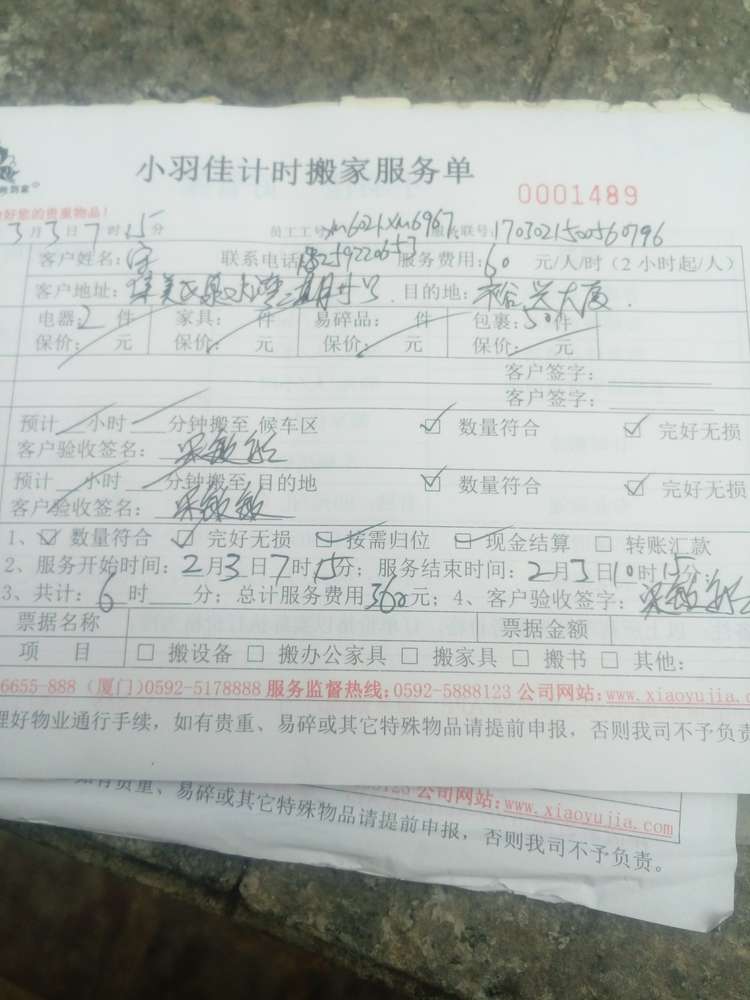 小羽佳计时搬家服务单
0001489
好您的贵重物品!
3月3日7时15分 员工工号xm6021xm6967 服务联号:1703021500560796
客户姓名:宋 联系电话:18259220653 服务费用:60元/人/时(2小时起/人)
客户地址: 目的地:裕兴大厦
电器:2件 家具: 件 易碎品: 件 包裹:50件
保价: 元 保价: 元 保价: 元 保价: 元
客户签字:
客户签字:
预计 小时 分钟搬至 候车区 ☑ 数量符合 ☑ 完好无损
客户验收签名:
预计 小时 分钟搬至 目的地 ☑ 数量符合 ☑ 完好无损
客户验收签名:
1、☑ 数量符合 ☑ 完好无损 ☑ 按需归位 ☑ 现金结算 □ 转账汇款
2、服务开始时间:2月3日7时15分;服务结束时间:2月3日10时15分;
3、共计:6时 分;总计服务费用360元;4、客户验收签字:
票据名称 票据金额
项 目 □ 搬设备 □ 搬办公家具 □ 搬家具 □ 搬书 □ 其他:
6655-888 (厦门)0592-5178888 服务监督热线:0592-5888123 公司网站:www.xiaoyujia.c
理好物业通行手续,如有贵重、易碎或其它特殊物品请提前申报,否则我司不予负责
123 公司网站:www.xiaoyujia.com
如有贵重、易碎或其它特殊物品请提前申报,否则我司不予负责。